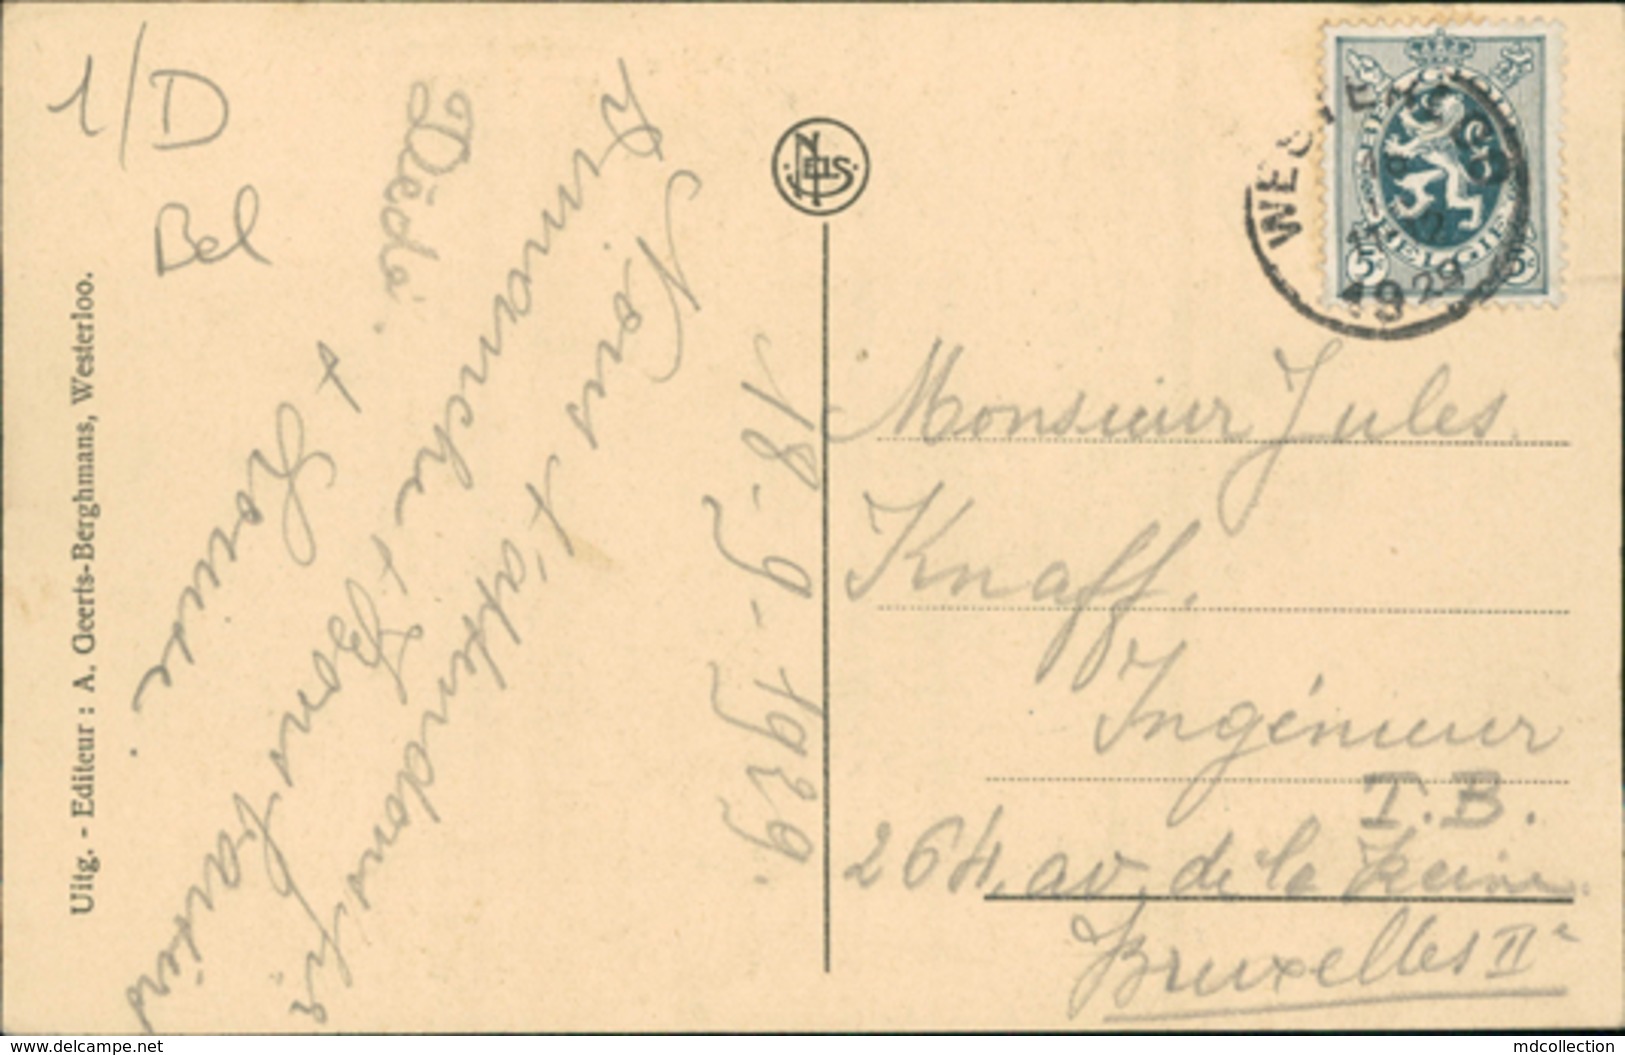 1/D
Bel
Uitg. - Editeur : A. Geerts-Berghmans, Westerloo.
18-9-1929.
Nous t'attendons
dimanche + Bons baisers
Dédé.
+ Louise.
NELS
WESTERLOO
1929
BELGIQUE
BELGIE
5c
5c
Monsieur Jules
Knaff.
Ingénieur
T.B.
264, av. de la Reine
Bruxelles IIe
delcampe.net
mdcollection